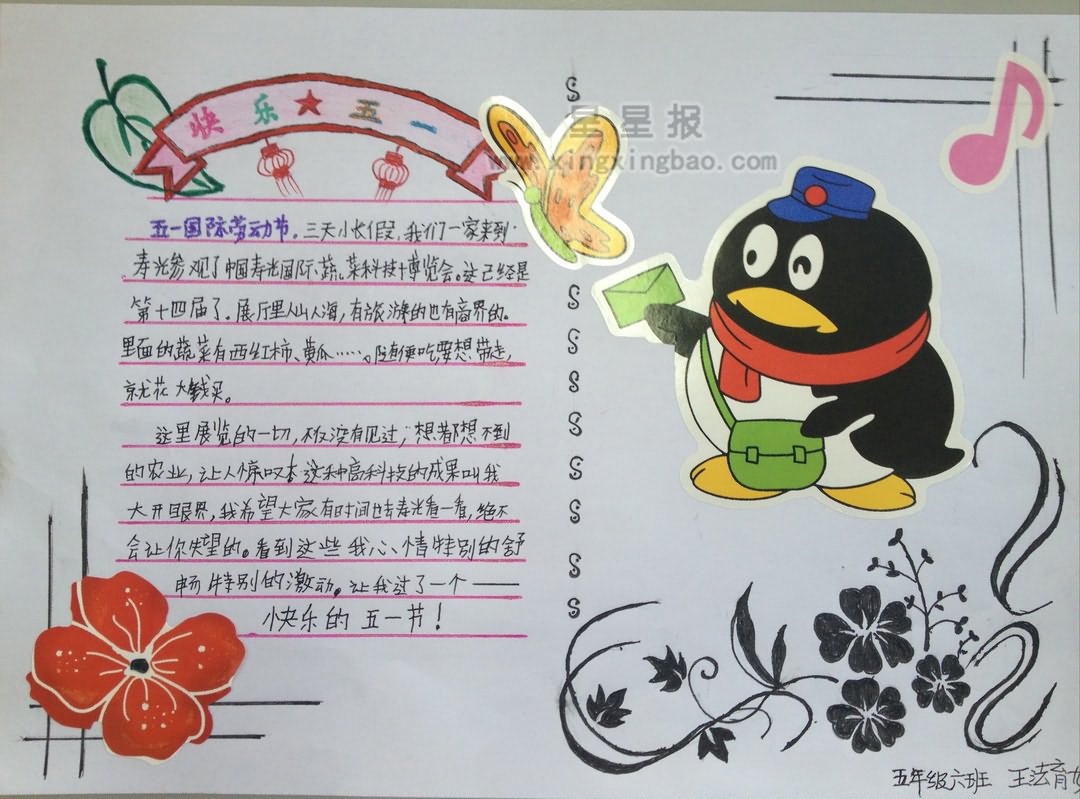 快乐★五一
星星报
www.xingxingbao.com
五一国际劳动节。三天小长假,我们一家来到
寿光参观了中国寿光国际蔬菜科技博览会。这已经是
第十四届了。展厅里人山人海,有旅游的也有商界的。
里面的蔬菜有西红柿、黄瓜……。随便吃要想带走,
就花大钱买。
这里展览的一切,不仅没有见过,想都想不到
的农业,让人惊叹 这种高科技的成果叫我
大开眼界,我希望大家有时间也去寿光看一看,绝不
会让你失望的。看到这些我心情特别的舒
畅特别的激动。让我过了一个——
快乐的五一节!
五年级六班 王法育